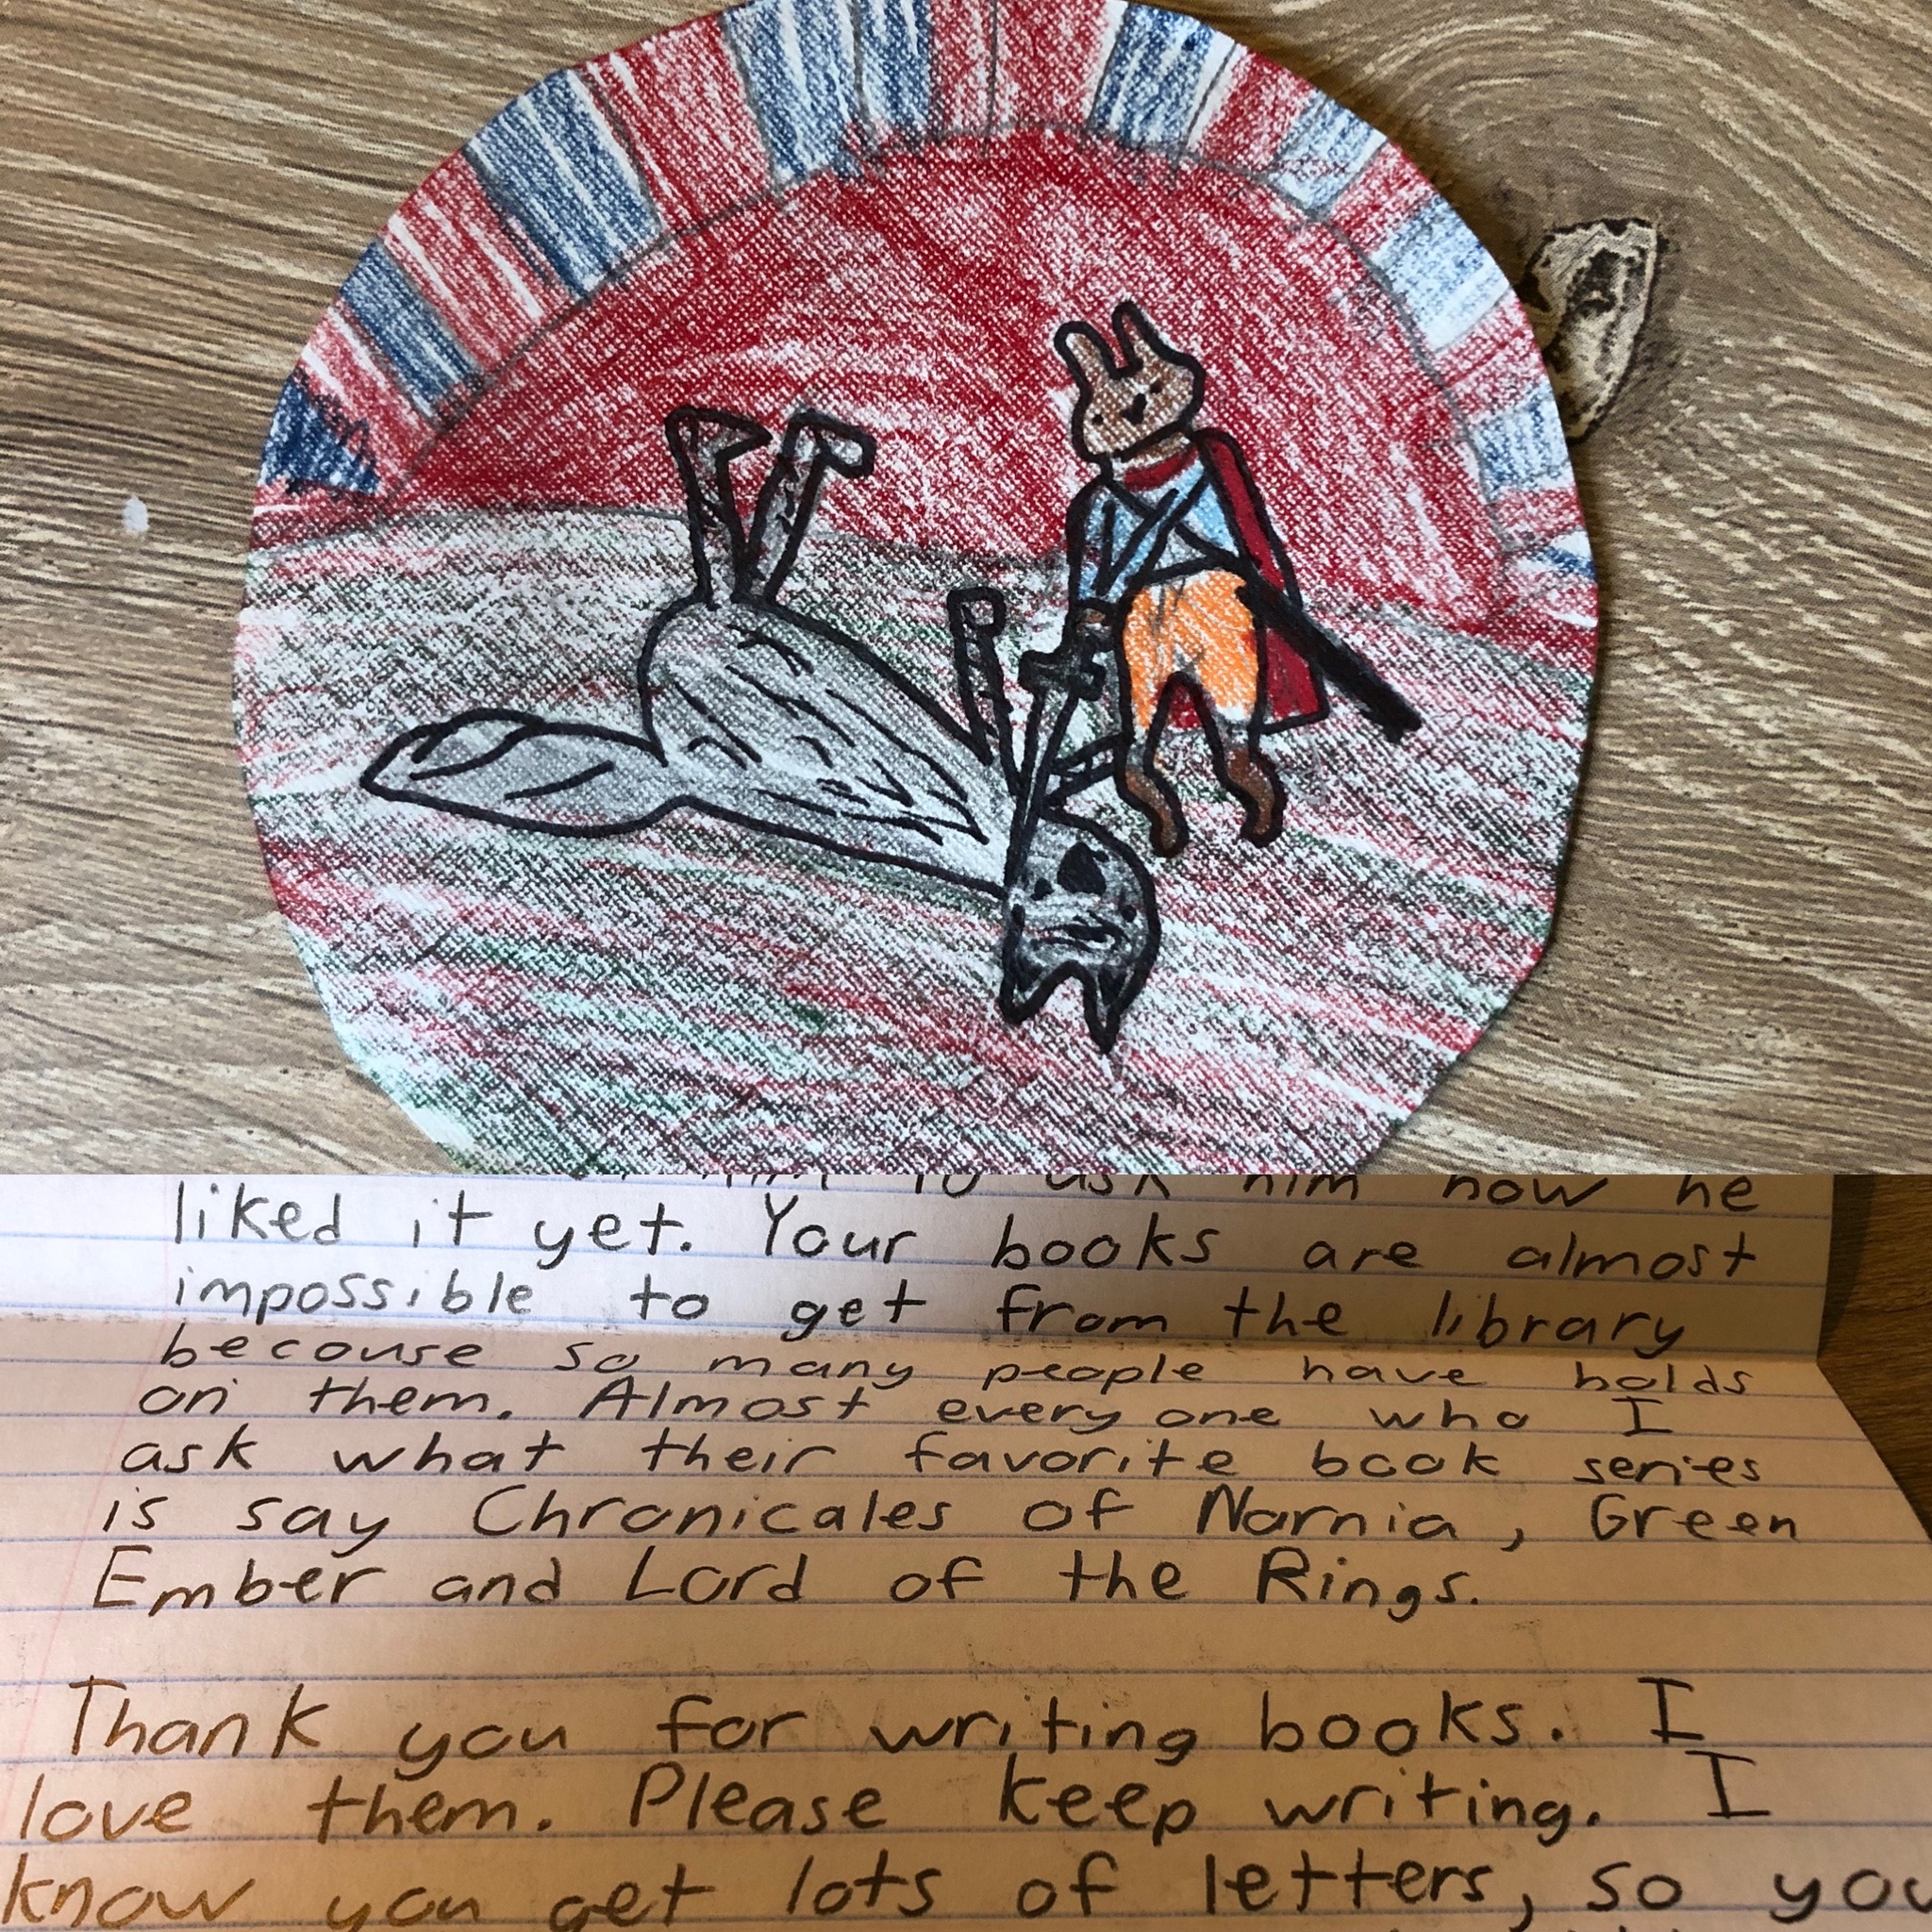 him to ask him how he
liked it yet. Your books are almost
impossible to get from the library
becouse so many people have holds
on them. Almost everyone who I
ask what their favorite book series
is say Chronicales of Narnia, Green
Ember and Lord of the Rings.
Thank you for writing books. I
love them. Please keep writing. I
know you get lots of letters, so you